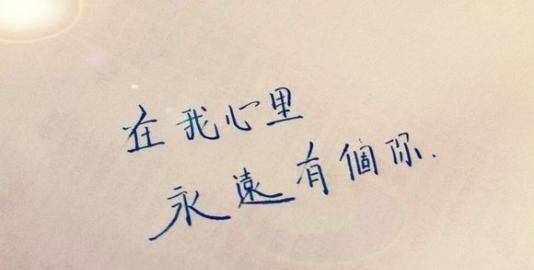 在我心里
永遠有個你.